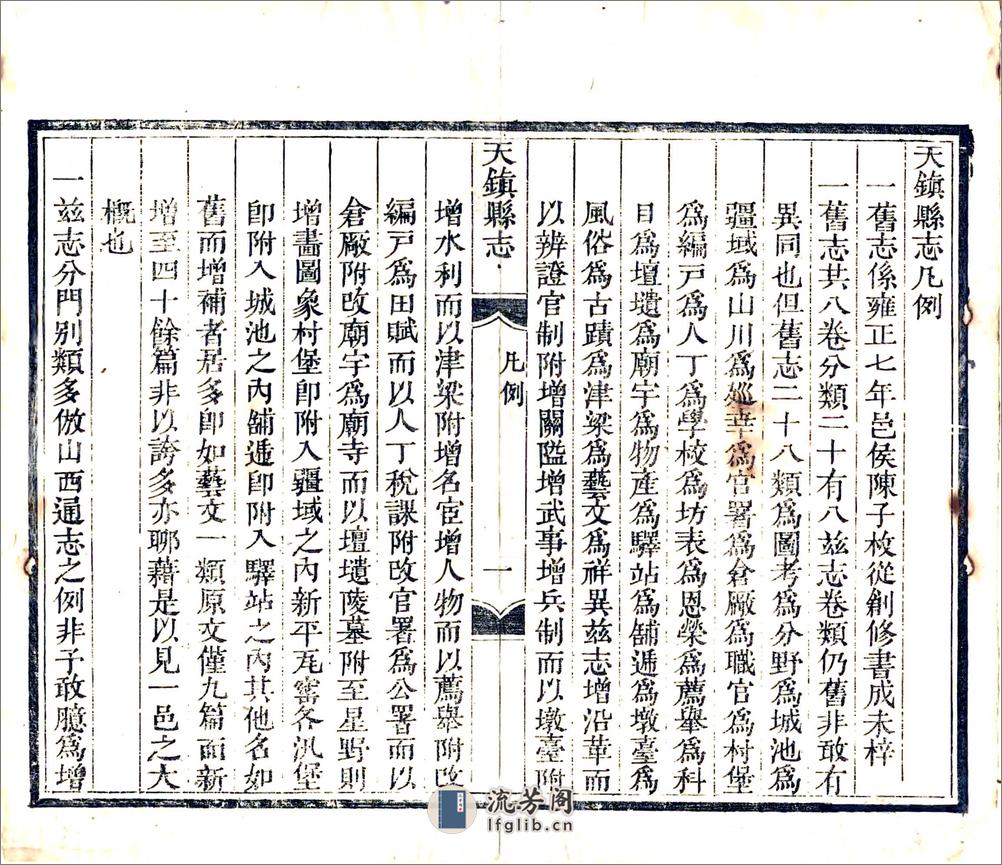 天鎮縣志凡例
一舊志係雍正七年邑侯陳子枚從創修書成未梓
一舊志共八卷分類二十有八茲志卷類仍舊非敢有
異同也但舊志二十八類為圖考為分野為城池為
疆域為山川為廵幸為官署為倉厰為職官為村堡
為編戸為人丁為學校為坊表為恩榮為薦舉為科
目為壇壝為廟宇為物產為驛站為舖遞為墩臺為
風俗為古蹟為津梁為藝文為祥異茲志增沿革而
以辨證官制附增關隘增武事增兵制而以墩臺附
天鎮縣志
凡例
一
增水利而以津梁附增名宦增人物而以薦舉附改
編戸為田賦而以人丁稅課附改官署為公署而以
倉厰附改廟宇為廟寺而以壇壝陵墓附至星野則
增畫圖象村堡卽附入疆域之內新平瓦窰各汛堡
卽附入城池之內舖遞卽附入驛站之內其他名如
舊而增補者居多卽如藝文一類原文僅九篇而新
增至四十餘篇非以誇多亦聊藉是以見一邑之大
槪也
一茲志分門別類多倣山西通志之例非予敢臆為增
流芳阁
lfglib.cn